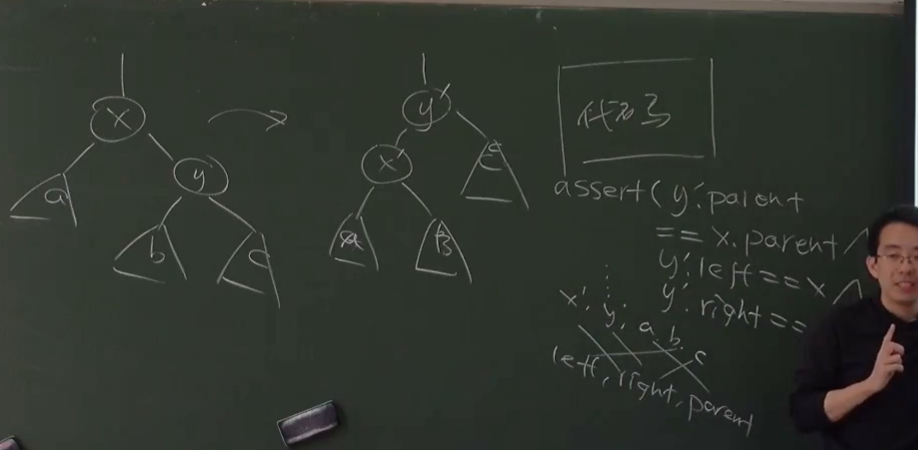 x
y
a
b
c
y'
x'
A
B
C
代码
assert( y'.parent
== x.parent ∧
y'.left == x ∧
y'.right ==
x', y', a, b, c
left, right, parent